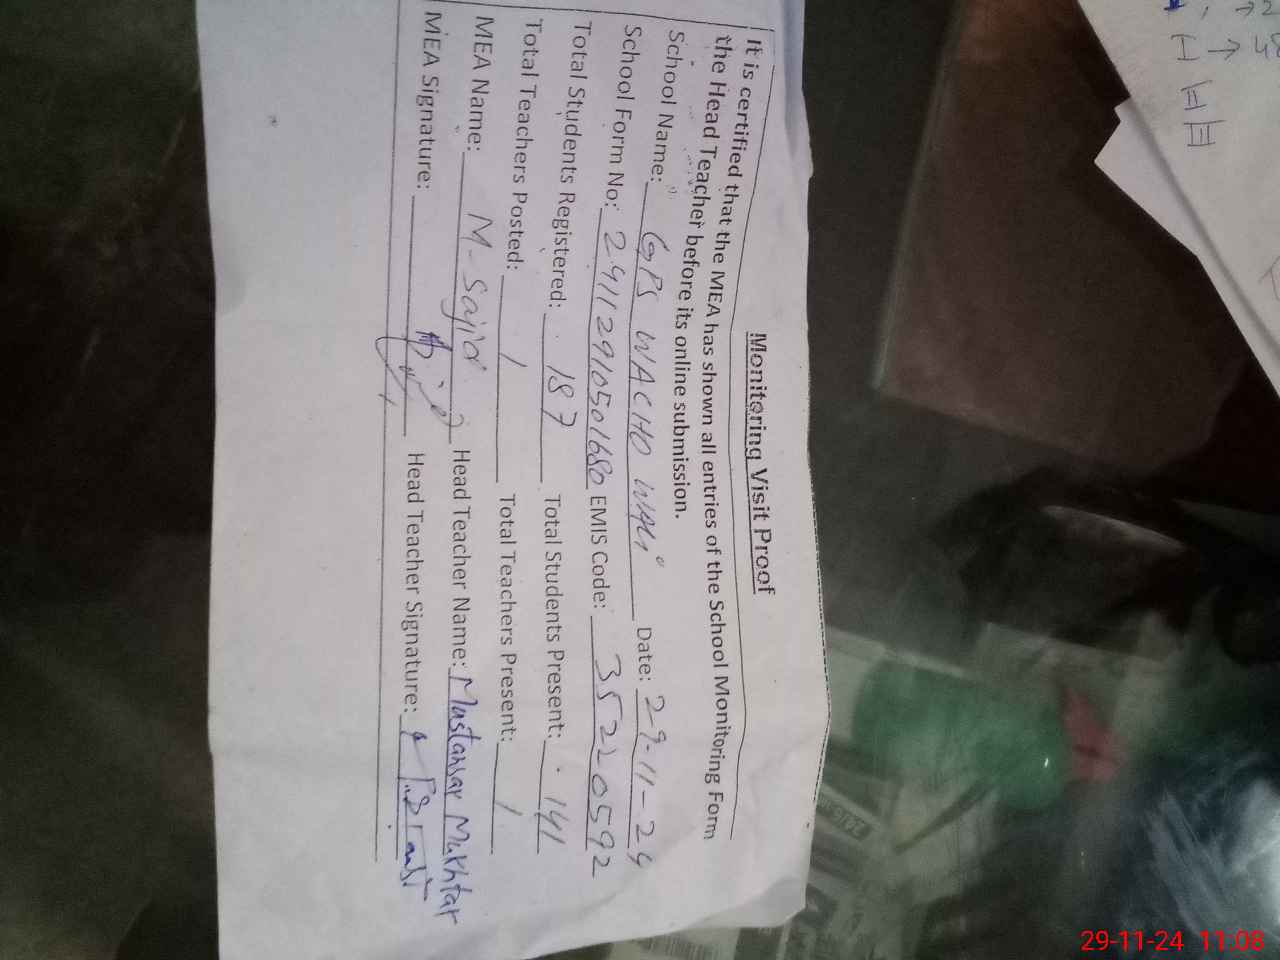 Monitoring Visit Proof
It is certified that the MEA has shown all entries of the School Monitoring Form
the Head Teacher before its online submission.
School Name: GPS WACHO WALI Date: 29-11-24
School Form No: 24112910501680 EMIS Code: 35220592
Total Students Registered: 187 Total Students Present: 141
Total Teachers Posted: 1 Total Teachers Present: 1
MEA Name: M-Sajid Head Teacher Name: Mustansar Mukhtar
MEA Signature: Head Teacher Signature:
29-11-24 11:08